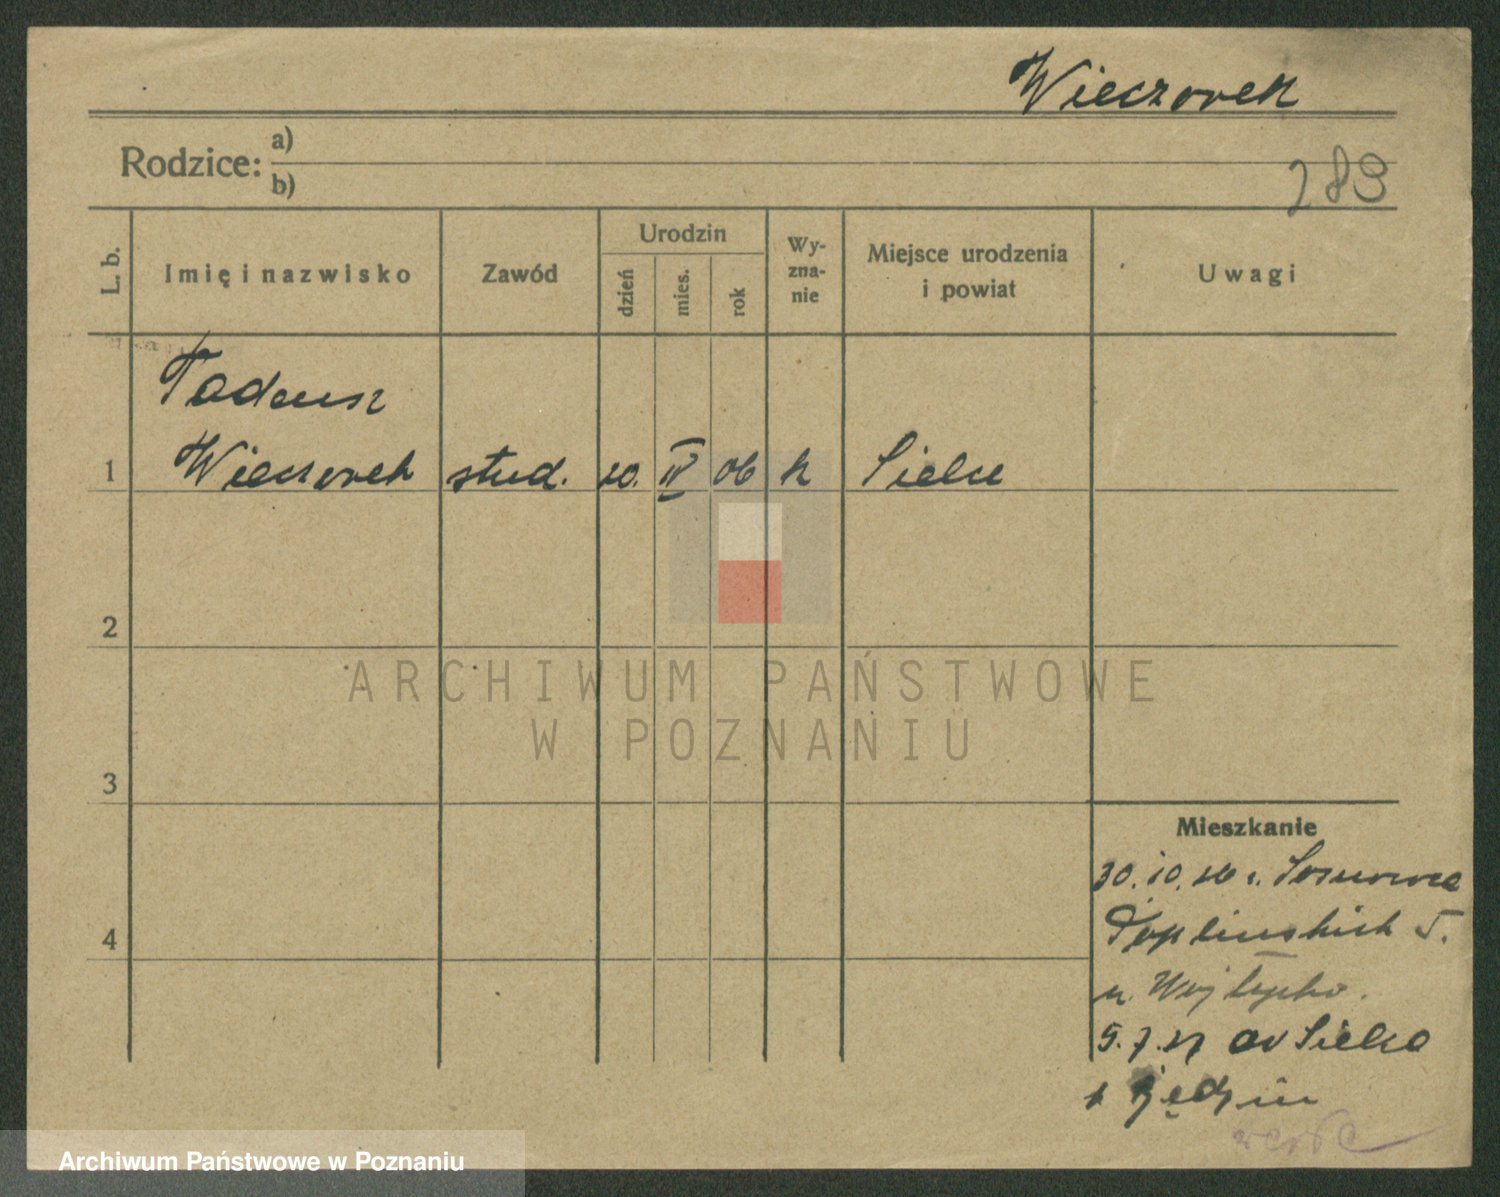 Wieczorek
Rodzice: a)
b)
289
L. b.
Imię i nazwisko
Zawód
Urodzin
dzień
mies.
rok
Wy-
zna-
nie
Miejsce urodzenia
i powiat
Uwagi
Tadeusz
1 Wieczorek stud. 10. IV 06 k Sielce
2
ARCHIWUM PAŃSTWOWE
W POZNANIU
3
Mieszkanie
30.10.26 z Sosnowca
4
5.
u.
5.7.27 do Sielca
Archiwum Państwowe w Poznaniu